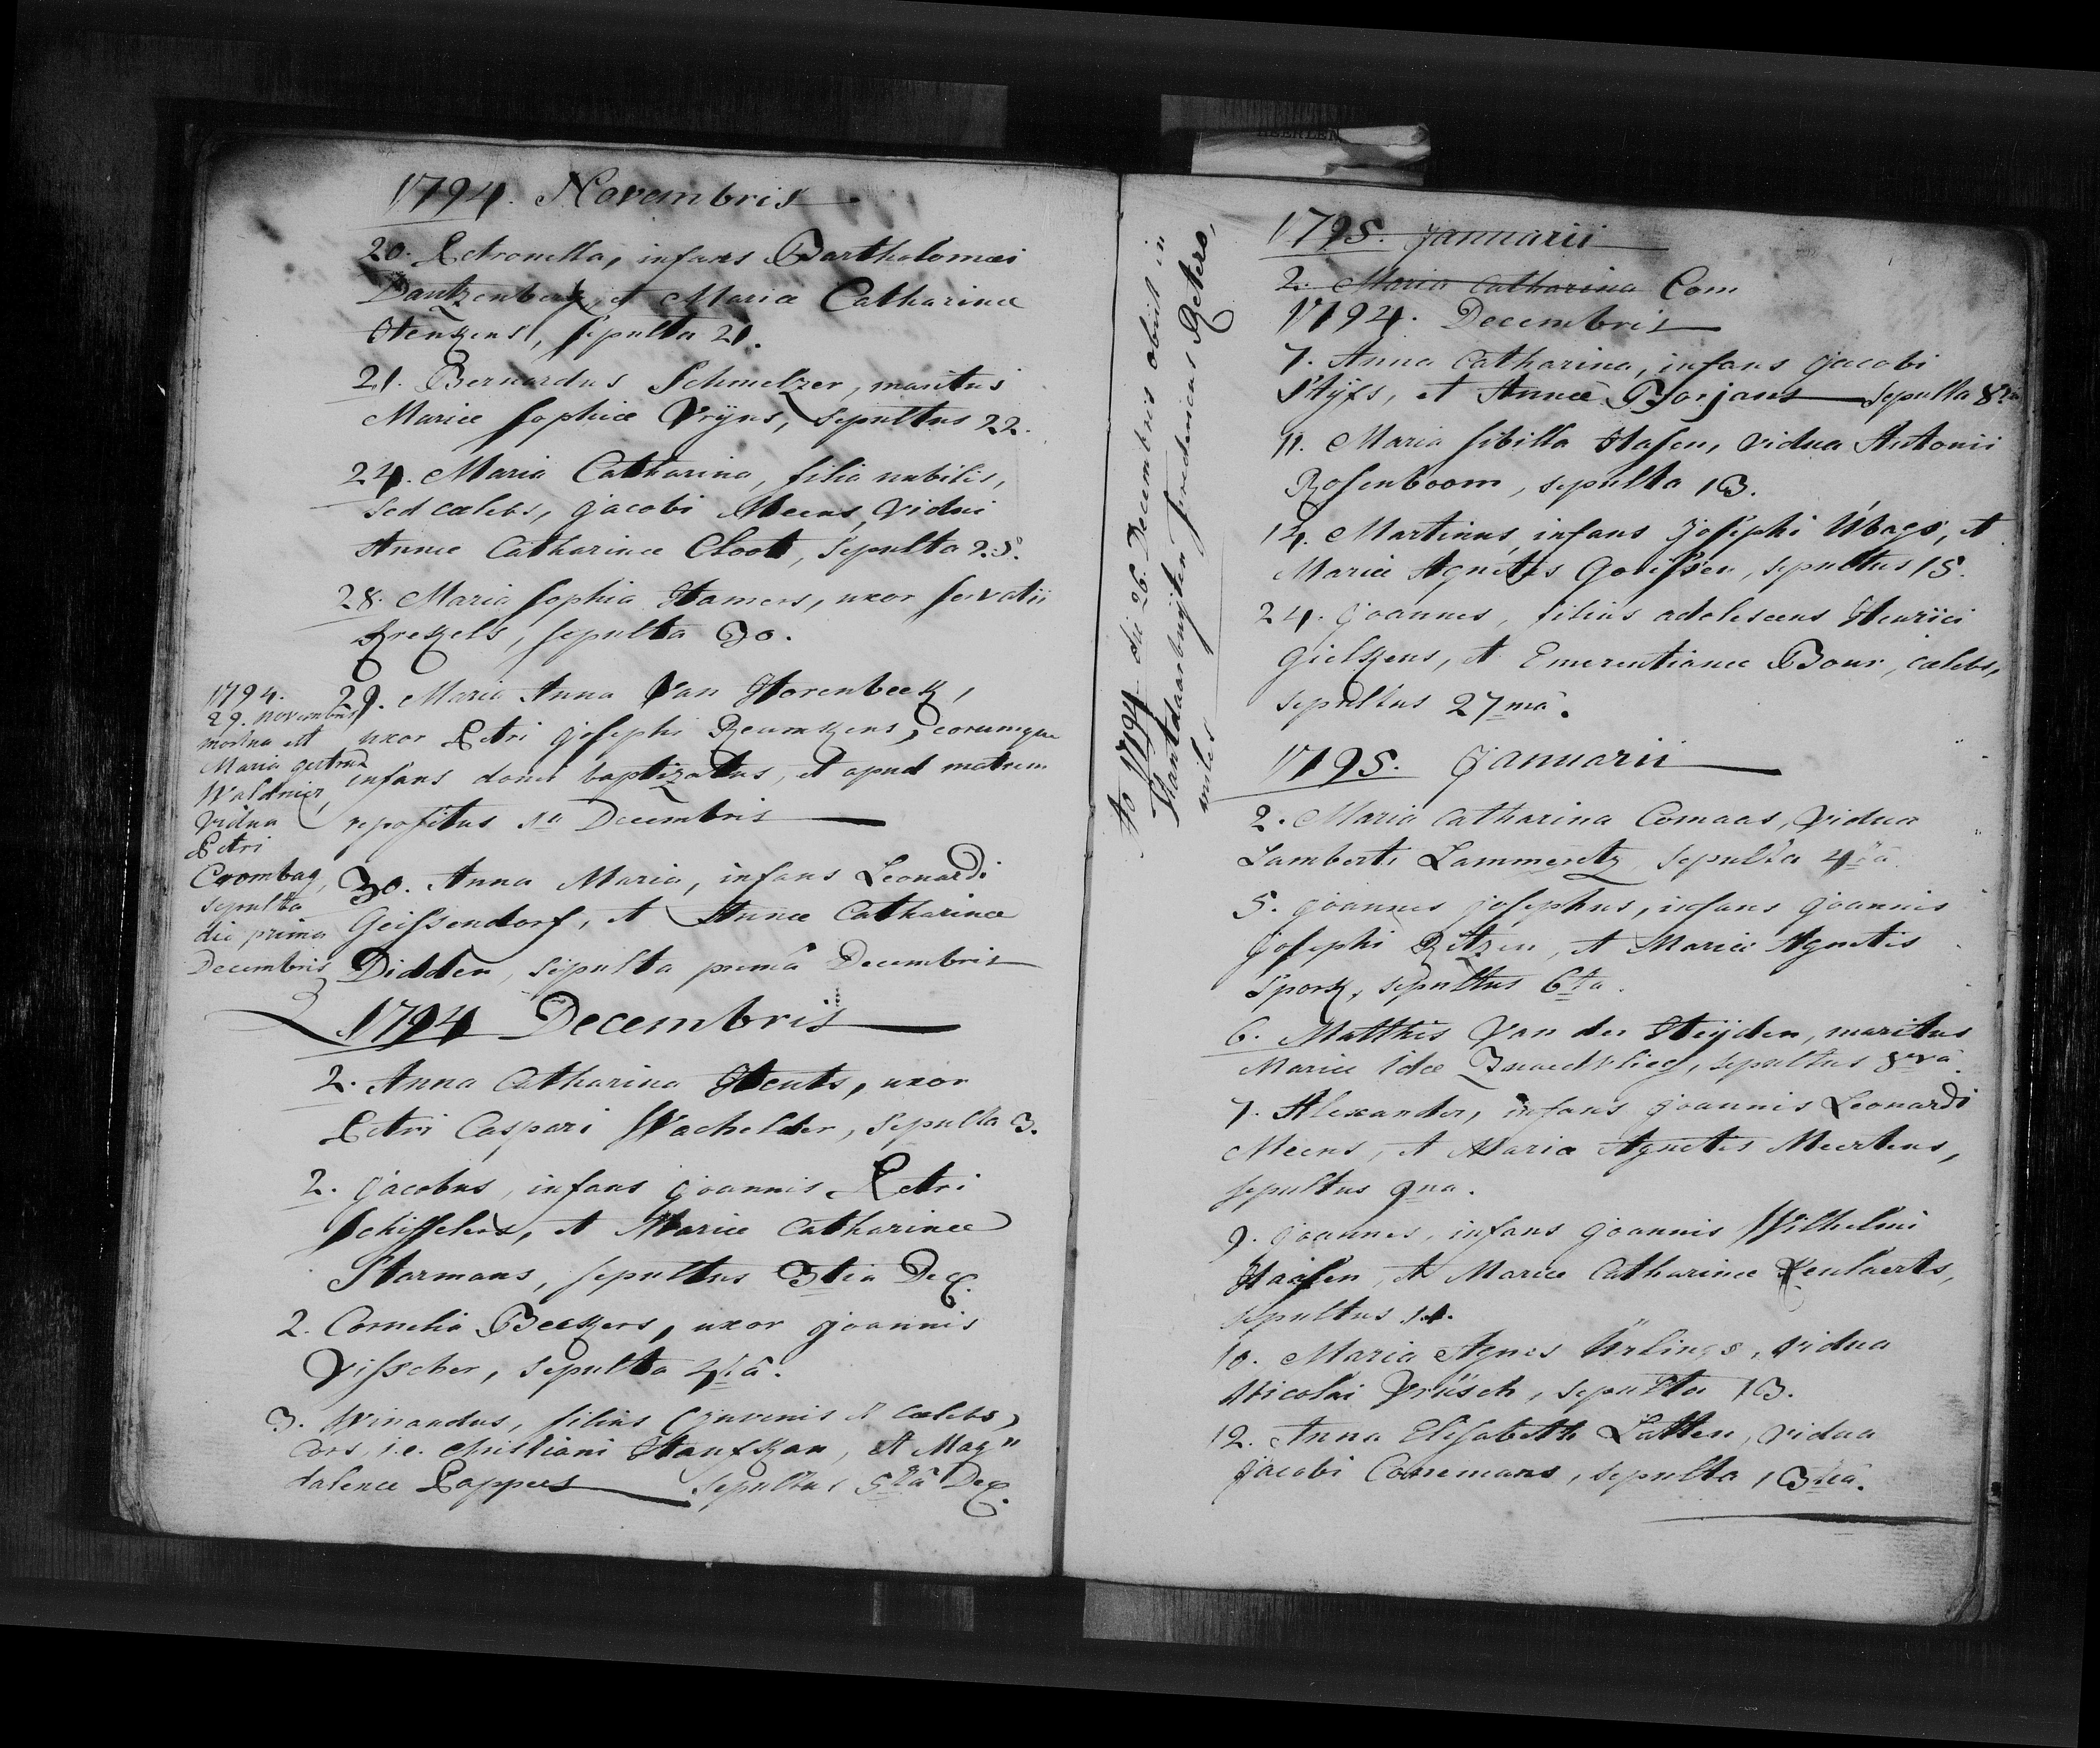 HEERLEN
1794. Novembris
20. Petronella, infans Bartholomæi
Dautzenberg, et Mariæ Catharinæ
Henkens, sepulta 21.
21. Bernardus Schmelzer, maritus
Mariæ Sophiæ Vrijns, sepultus 22.
24. Maria Catharina, filia nubilis,
sed cælebs, Jacobi Meens, vidui
Annæ Catharinæ Cloot, sepulta 25.
28. Maria Sophia Hamers, uxor Servatii
Krekels, sepulta 30.
29. Maria Anna Van Horenbeek,
uxor Petri Josephi Reumkens, eorumque
infans domi baptizatus, et apud matrem
repositus 1a Decembris
1794.
29. Novembris
mortua est
Maria Gertrud
Waldmier,
vidua
Petri
Crombag,
sepulta
die prima
Decembris
30. Anna Maria, infans Leonardi
Geissendorf, et Annæ Catharinæ
Didden, sepulta primâ Decembris
1794 Decembris
2. Anna Catharina Hents, uxor
Petri Caspari Wachelder, sepulta 3.
2. Jacobus, infans Joannis Petri
Schiffelers, et Mariæ Catharinæ
Starmans, sepultus 3tia Dec.
2. Cornelia Beckers, uxor Joannis
Visscher, sepulta 4tâ.
3. Winandus, filius (juvenis et cælebs)
Cors, i.e. Christiani Haufkan, et Mag"
dalenæ Pappers sepultus 5tâ Dec.
Ao 1794 die 26. Decembris obiit in
Stantdaarbuijten Fredericus Peters,
miles
1795. Januarii
2. Maria Catharina Com
1794. Decembris
7. Anna Catharina, infans Jacobi
Stijfs, et Annæ Borjans sepulta 8va
11. Maria Sibilla Hasen, vidua Antonii
Rosenboom, sepulta 13.
14. Martinus, infans Josephi Ubags, et
Mariæ Agnetis Gorissen, sepultus 15.
24. Joannes, filius adolescens Henrici
Gielkens, et Emerentianæ Bour, cælebs,
sepultus 27mâ.
1795. Januarii
2. Maria Catharina Comaas, vidua
Lamberti Lammeretz, sepulta 4tâ
5. Joannes Josephus, infans Joannis
Josephi Ritzen, et Mariæ Agnetis
Spork, sepultus 6ta.
6. Matthis Van der Heijden, maritus
Mariæ Idæ Quaedvlieg, sepultus 8vâ.
7. Alexander, infans Joannis Leonardi
Meens, et Mariæ Agnetis Meertens,
sepultus 9na.
9. Joannes, infans Joannis Wilhelmi
Haasen, et Mariæ Catharinæ Keulaerts,
sepultus 11.
10. Maria Agnes Ürlings, vidua
Nicolai Vrüsch, sepulta 13.
12. Anna Elisabeth Latten, vidua
Jacobi Connemans, sepulta 13tiâ.